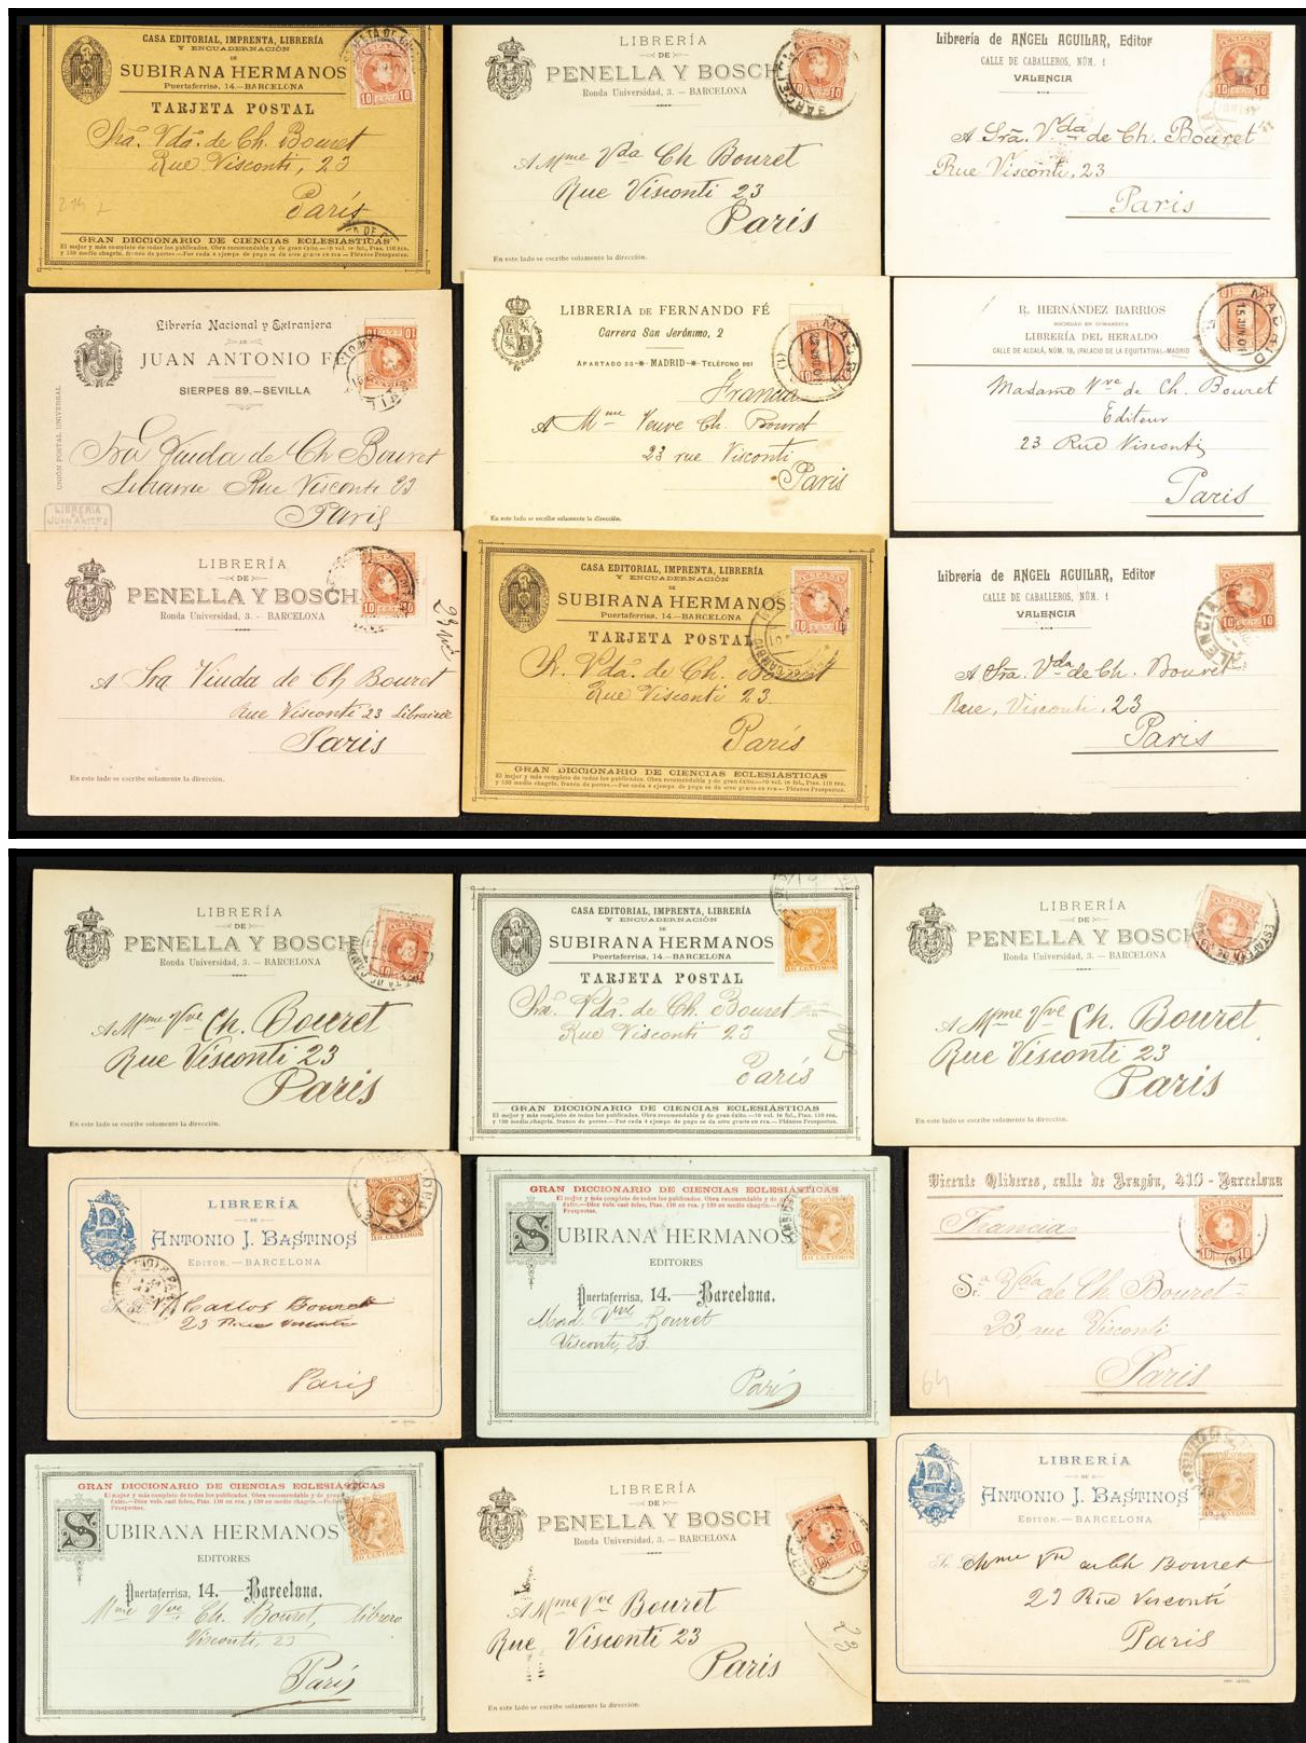 CASA EDITORIAL, IMPRENTA, LIBRERÍA
Y ENCUADERNACIÓN
DE
SUBIRANA HERMANOS
Puertaferrisa, 14.—BARCELONA
TARJETA POSTAL
Sra. Vda. de Ch. Bouret
Rue Visconti, 23
París
GRAN DICCIONARIO DE CIENCIAS ECLESIÁSTICAS
LIBRERÍA
DE
PENELLA Y BOSCH
Ronda Universidad, 3. — BARCELONA
A Mme Vda Ch Bouret
Rue Visconti 23
Paris
En este lado se escribe solamente la dirección.
Librería de ANGEL AGUILAR, Editor
CALLE DE CABALLEROS, NÚM. 1
VALENCIA
A Sra. Vda de Ch. Bouret
Rue Visconti, 23
Paris
Librería Nacional y Extranjera
DE
JUAN ANTONIO FÉ
SIERPES 89.—SEVILLA
UNIÓN POSTAL UNIVERSAL
Sra Viuda de Ch Bouret
Librairie Rue Visconti 23
Paris
LIBRERIA DE FERNANDO FÉ
Carrera San Jerónimo, 2
MADRID
Francia
A Mme Veuve Ch. Bouret
23 rue Visconti
Paris
En este lado se escribe solamente la dirección.
R. HERNÁNDEZ BARRIOS
SOCIEDAD EN COMANDITA
LIBRERÍA DEL HERALDO
CALLE DE ALCALÁ, NÚM. 18, (PALACIO DE LA EQUITATIVA).-MADRID
MADRID
15 JUN 01
Madame Vve de Ch. Bouret
Editeur
23 Rue Visconti
Paris
LIBRERÍA
DE
PENELLA Y BOSCH
Ronda Universidad, 3. - BARCELONA
A Sra Viuda de Ch Bouret
Rue Visconti 23 Librairie
Paris
En este lado se escribe solamente la dirección.
CASA EDITORIAL, IMPRENTA, LIBRERÍA
Y ENCUADERNACIÓN
DE
SUBIRANA HERMANOS
Puertaferrisa, 14.—BARCELONA
TARJETA POSTAL
Sr. Vda. de Ch. Bouret
Rue Visconti 23.
París
GRAN DICCIONARIO DE CIENCIAS ECLESIÁSTICAS
Librería de ANGEL AGUILAR, Editor
CALLE DE CABALLEROS, NÚM. 1
VALENCIA
A Sra. Vda de Ch. Bouret
Rue, Visconti, 23
Paris
LIBRERÍA
DE
PENELLA Y BOSCH
Ronda Universidad, 3. — BARCELONA
A Mme Vve Ch. Bouret
Rue Visconti 23
Paris
En este lado se escribe solamente la dirección.
CASA EDITORIAL, IMPRENTA, LIBRERÍA
Y ENCUADERNACIÓN
DE
SUBIRANA HERMANOS
Puertaferrisa, 14.—BARCELONA
TARJETA POSTAL
Sra. Vda. de Ch. Bouret
Rue Visconti 23
París
GRAN DICCIONARIO DE CIENCIAS ECLESIÁSTICAS
LIBRERÍA
DE
PENELLA Y BOSCH
Ronda Universidad, 3. — BARCELONA
A Mme Vve Ch. Bouret
Rue Visconti 23
Paris
En este lado se escribe solamente la dirección.
LIBRERÍA
DE
ANTONIO J. BASTINOS
EDITOR. — BARCELONA
Carlos Bouret
23 Rue Visconti
Paris
GRAN DICCIONARIO DE CIENCIAS ECLESIÁSTICAS
SUBIRANA HERMANOS
EDITORES
Puertaferrisa, 14.—Barcelona.
Mad. Vve Bouret
Visconti, 23.
París
Vicente Oliveres, calle de Aragón, 415 - Barcelona
Francia
Sra Vda de Ch. Bouret
23, rue Visconti
Paris
64
GRAN DICCIONARIO DE CIENCIAS ECLESIÁSTICAS
SUBIRANA HERMANOS
EDITORES
Puertaferrisa, 14.—Barcelona.
Mme Vve Ch. Bouret, librero
Visconti, 23
París
LIBRERÍA
DE
PENELLA Y BOSCH
Ronda Universidad, 3. — BARCELONA
A Mme Vve Bouret
Rue Visconti 23
Paris
23
En este lado se escribe solamente la dirección.
LIBRERÍA
DE
ANTONIO J. BASTINOS
EDITOR. — BARCELONA
Bouret
23 Rue Visconti
Paris